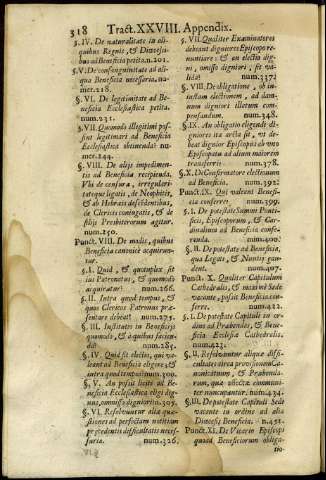 318 Tract. XXVIII. Appendix.
§. IV. De naturalitate in ali-
quibus Regnis, & Diœcesi-
bus ad Beneficia petita. n. 201.
§. V. De consanguinitate ad ali-
qua Beneficia necessaria. nu-
mer. 218.
§. VI. De legitimitate ad Be-
neficia Ecclesiastica petita.
num. 231.
§. VII. Quomodo illegitimi pos-
sint legitimari ad Beneficia
Ecclesiastica obtinenda? nu-
mer. 244.
§. VIII. De aliis impedimen-
tis ad Beneficia recipienda.
Ubi de censura, irregulari-
tateque ligatis, de Neophitis,
& ab Hæresis descendentibus,
de Clericis conjugatis, & de
filijs Presbiterorum agitur.
num. 250.
Punct. VIII. De modis, quibus
Beneficia canonicè acquirun-
tur.
§. I. Quid, & quotuplex sit
ius Patronatus, & quomodo
acquiratur? num. 266.
§. II. Intra quod tempus, &
quos Clericus Patronus præ-
sentare debeat? num. 275.
§. III. Institutio in Beneficijs
quomodo, & à quibus facien-
da? num. 283.
§. IV. Quid sit electio, qui va-
leant ad Beneficia eligere, &
intra quod tempus? num. 300.
§. V. An possit licitè ad Be-
neficia Ecclesiastica eligi dig-
nus, omisso digniori? n. 305.
§. VI. Resolvuntur aliæ quæ-
stiones ad perfectam notitiam
præcedentis difficultatis neces-
sariæ. num. 326.
§. VII. Qualiter Examinatores
debeant digniores Episcopo re-
nuntiare: & an electio dig-
ni, omisso digniori, sit va-
lida? num. 337.
§. VIII. De obligatione, ob in-
iustam electionem, ad dam-
num digniori illatum com-
pensandum. num. 348.
§. IX. An obligatio eligendi di-
gniores ita arcta sit, ut de-
beat dignior Episcopus ab uno
Episcopatu ad alium maiorem
transferri? num. 378.
§. X. De Confirmatione electorum
ad Beneficia. num. 392.
Punct. IX. Qui valeant Benefi-
cia conferre. num. 399.
§. I. De potestate Summi Ponti-
ficis, Episcoporum, & Car-
dinalium ad Beneficia confe-
renda. num. 400.
§. II. De potestate ad Beneficia,
qua Legati, & Nuntij gau-
dent. num. 407.
Punct. X. Qualiter Capitulum
Cathedralis, & eius nè Sede
vacante, possit Beneficia con-
ferre. num. 422.
§. I. De potestate Capituli in or-
dine ad Præbendas, & Bene-
ficia Ecclesiæ Cathedralis.
num. 423.
§. II. Resolvuntur aliquæ diffi-
cultates circa provisionem Ca-
nonicatuum, & Præbenda-
rum, quæ obiectæ communi-
ter nuncupantur. num. 434.
§. III. De potestate Capituli Sede
vacante in ordine ad alia
Diœcesis Beneficia. n. 451.
Punct. XI. De Vicario Episcopi
quoad Beneficiorum obliga-
tio-